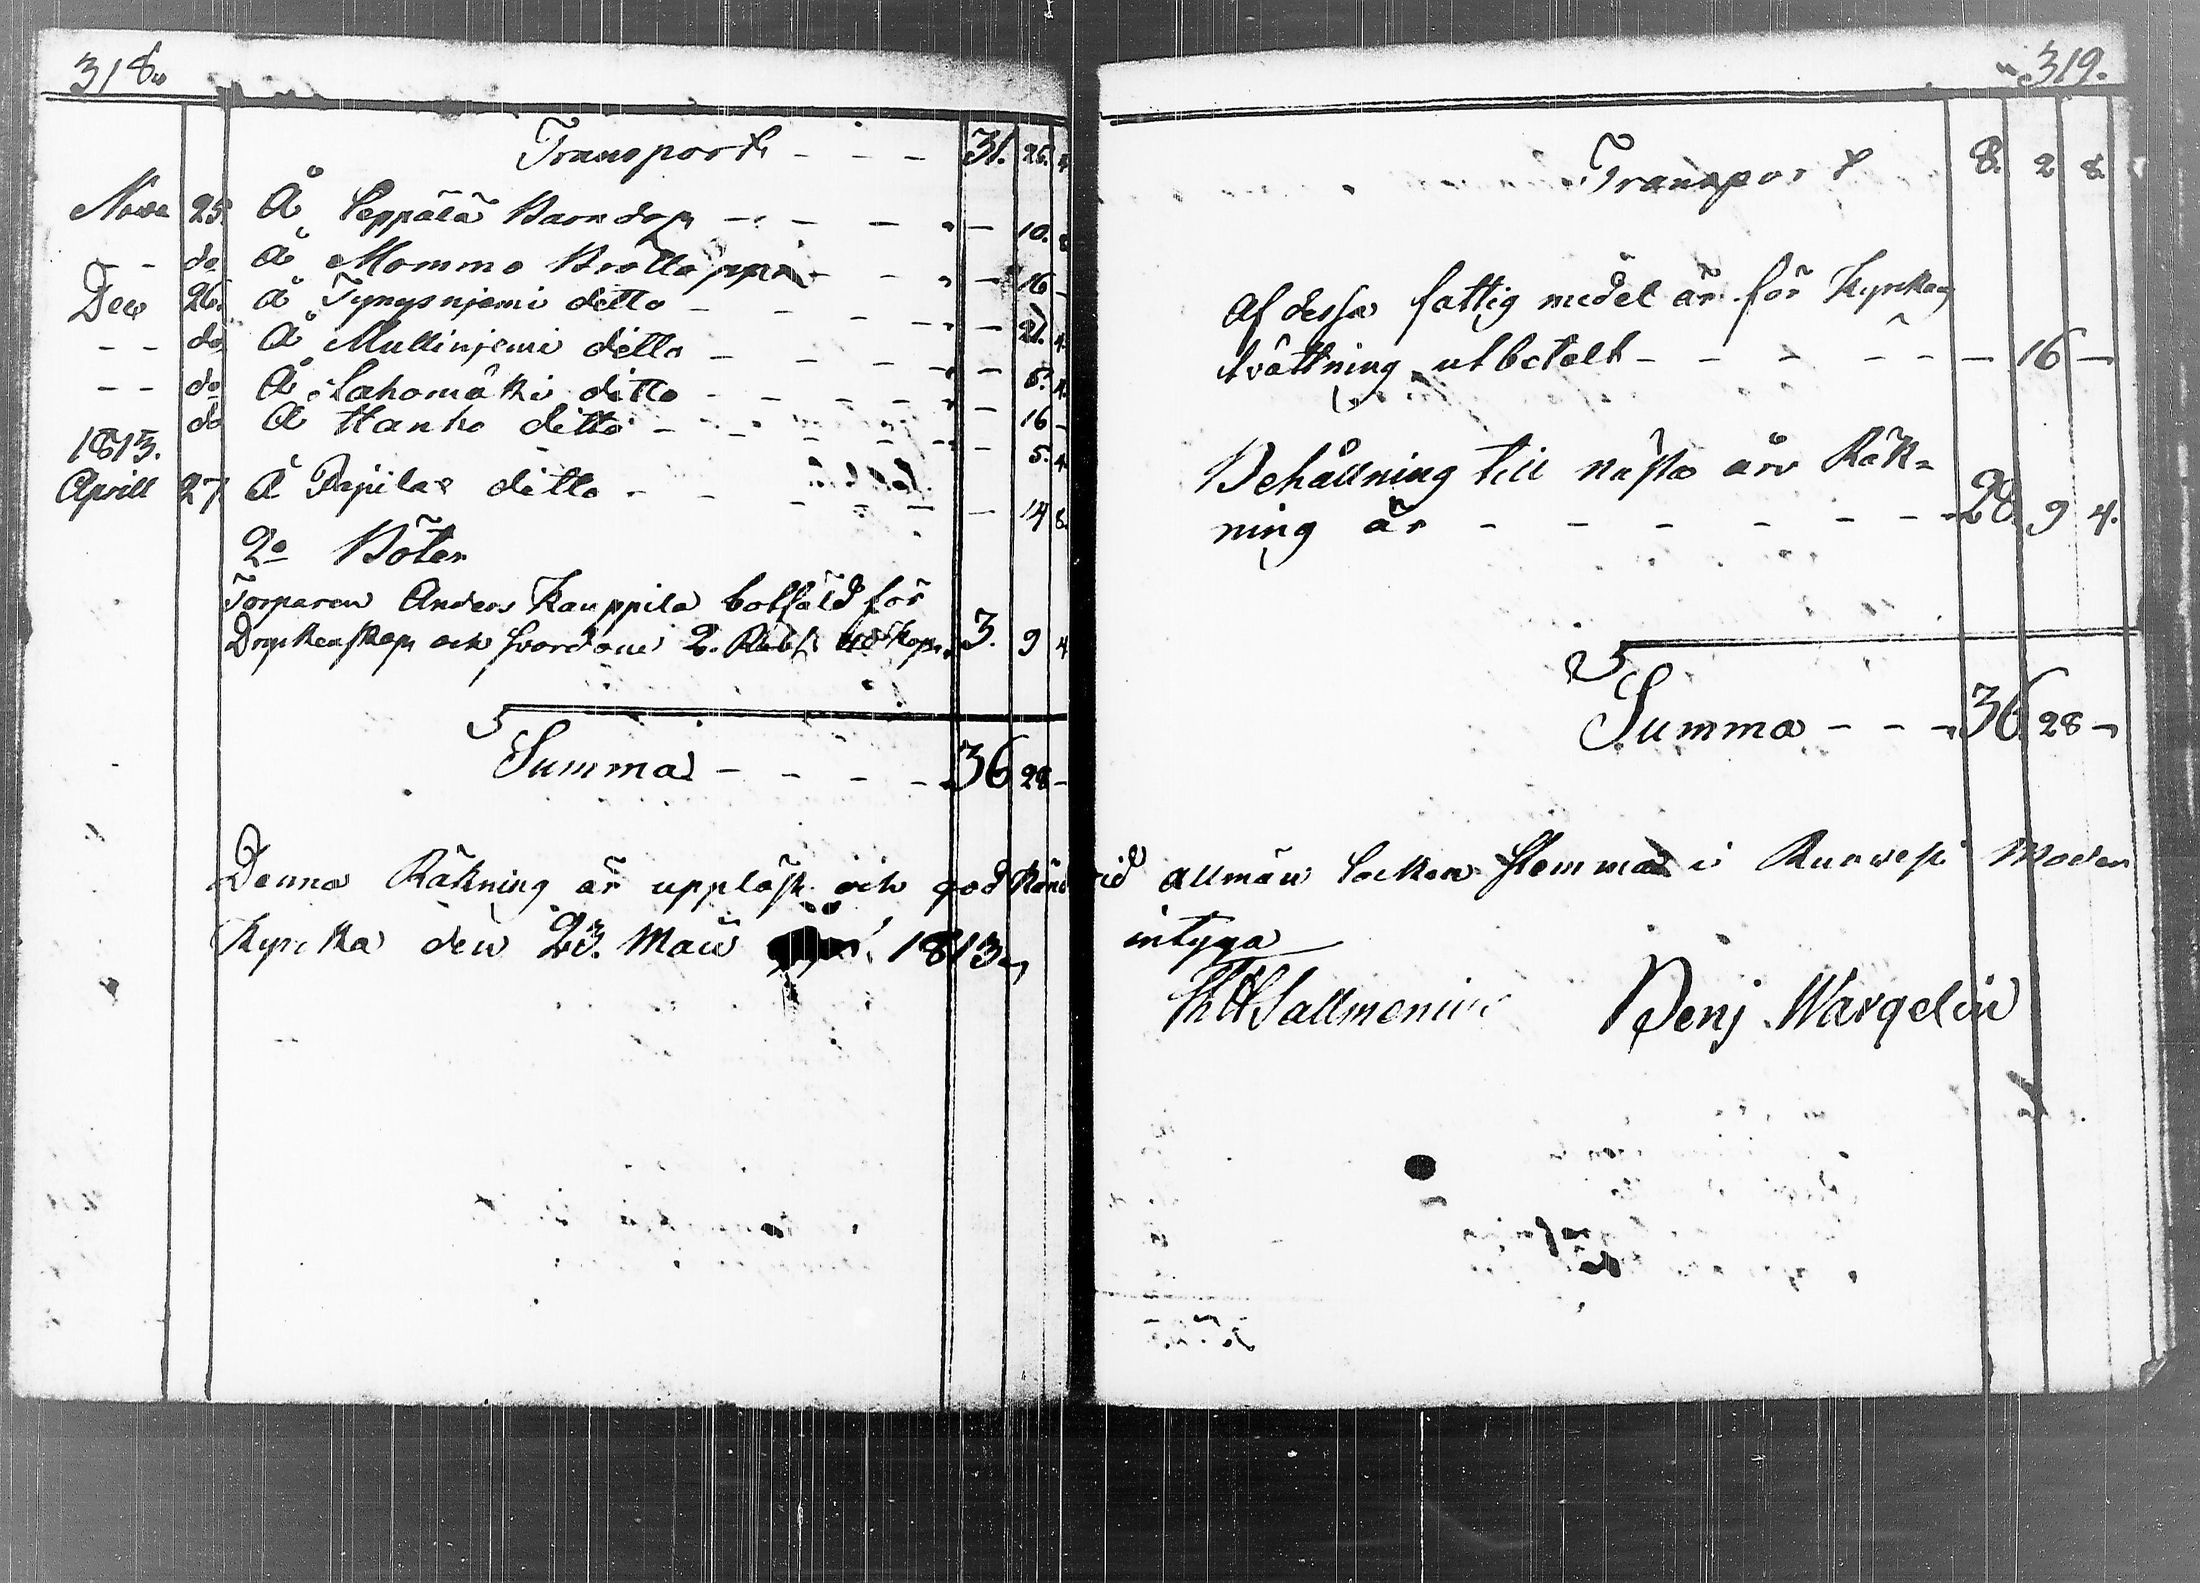 318.
Transport - - - 31. 25. 4
Nov 25. Å Seppälä Barndop - - - - 10. 8
- - do Å Mommo Bröllopp - - - 16 -
Dec 26. Å Tynysnjemi ditto - - - - - 21. 4
- - do Å Mullinjemi ditto - - - - - 5. 4
- - do Å Sahomäki ditto - - - - - 16 -
do Å Hanho ditto - - - - - 5. 4
1813.
Aprill 27 Å ditto - - - - - 14 8.
2o Böter
Torparen Anders Kauppila botfäld för
Dryckenskap och svordom 2. Rub. 40 Kop. 3. 9 4
Summa - - - - 36 28 -
Denna Räkning är uppläst och godkänd
Kyrcka den 23. Maii 1813.
319.
Transport 8. 2 8
Af dessa fattig medel är för Kyrkans
tvättning utbetalt - - - - - - 16 -
Behållning till nästa års Räk=
ning är - - - - - - 28. 9 4.
Summa - - - 36 28 -
vid allmän Socken Stemma i Ruovesi Moder
intyga
Sallmenius Benj Wargelin